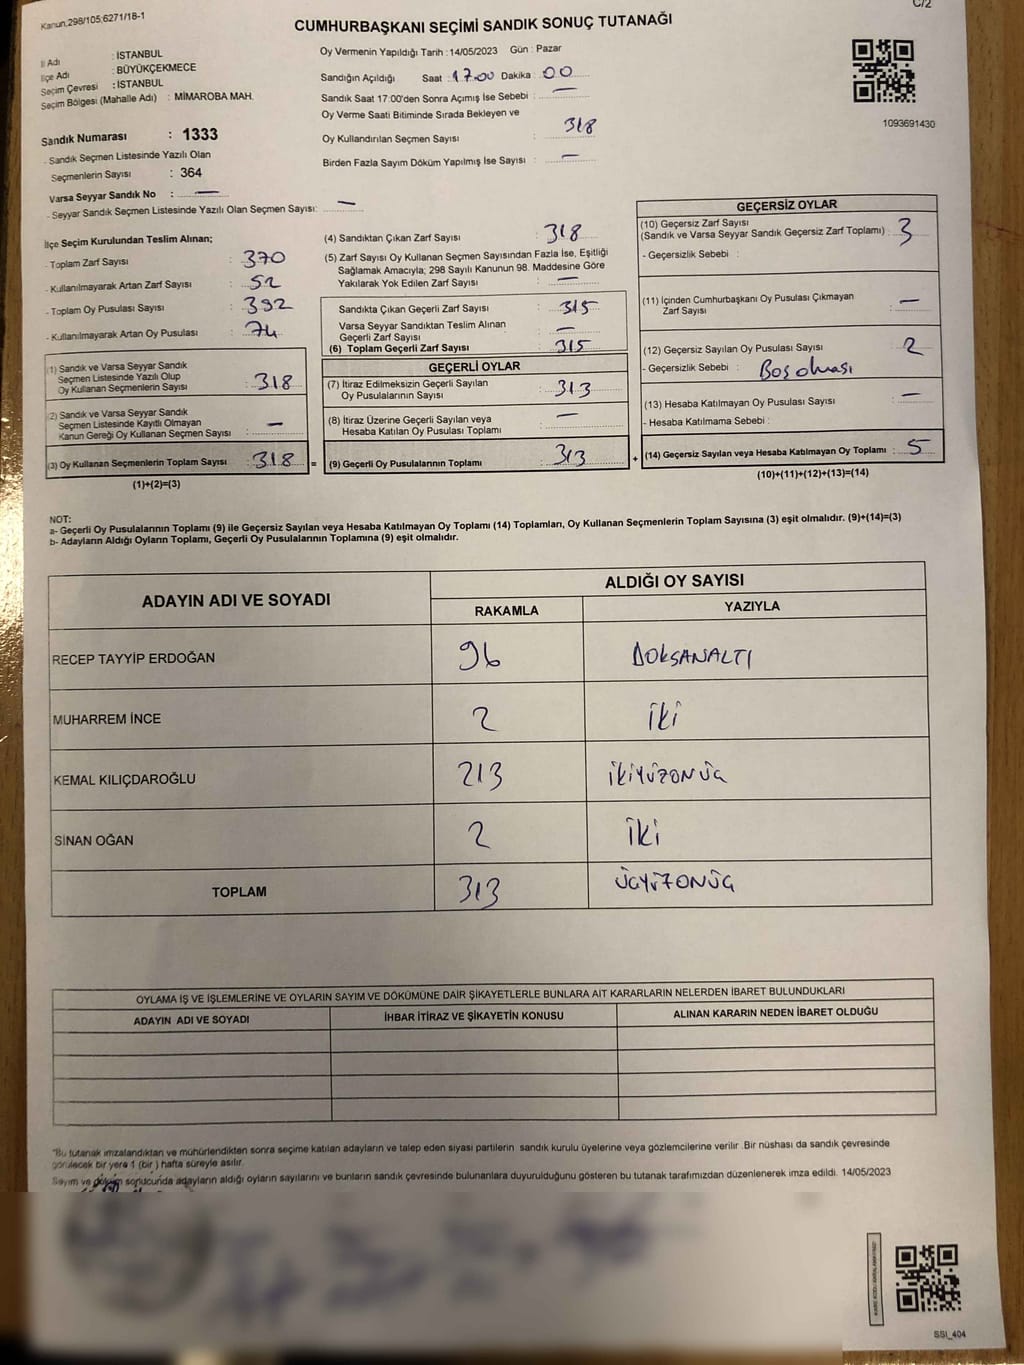 Kanun,298/105,6271/18-1
C/2
CUMHURBAŞKANI SEÇİMİ SANDIK SONUÇ TUTANAĞI
İl Adı : İSTANBUL
İlçe Adı : BÜYÜKÇEKMECE
Seçim Çevresi : İSTANBUL
Seçim Bölgesi (Mahalle Adı) : MİMAROBA MAH.
Oy Vermenin Yapıldığı Tarih : 14/05/2023 Gün : Pazar
Sandığın Açıldığı Saat : 17.00 Dakika : 00
Sandık Saat 17:00'den Sonra Açımış İse Sebebi : —
Oy Verme Saati Bitiminde Sırada Bekleyen ve
Oy Kullandırılan Seçmen Sayısı : 318
Birden Fazla Sayım Döküm Yapılmış İse Sayısı : —
1093691430
Sandık Numarası : 1333
- Sandık Seçmen Listesinde Yazılı Olan
Seçmenlerin Sayısı : 364
Varsa Seyyar Sandık No : —
- Seyyar Sandık Seçmen Listesinde Yazılı Olan Seçmen Sayısı: —
İlçe Seçim Kurulundan Teslim Alınan;
- Toplam Zarf Sayısı : 370
- Kullanılmayarak Artan Zarf Sayısı : 52
- Toplam Oy Pusulası Sayısı : 392
- Kullanılmayarak Artan Oy Pusulası : 74
(1) Sandık ve Varsa Seyyar Sandık
Seçmen Listesinde Yazılı Olup
Oy Kullanan Seçmenlerin Sayısı : 318
(2) Sandık ve Varsa Seyyar Sandık
Seçmen Listesinde Kayıtlı Olmayan
Kanun Gereği Oy Kullanan Seçmen Sayısı : —
(3) Oy Kullanan Seçmenlerin Toplam Sayısı : 318 =
(1)+(2)=(3)
(4) Sandıktan Çıkan Zarf Sayısı : 318
(5) Zarf Sayısı Oy Kullanan Seçmen Sayısından Fazla İse, Eşitliği
Sağlamak Amacıyla; 298 Sayılı Kanunun 98. Maddesine Göre
Yakılarak Yok Edilen Zarf Sayısı : —
Sandıkta Çıkan Geçerli Zarf Sayısı : 315
Varsa Seyyar Sandıktan Teslim Alınan
Geçerli Zarf Sayısı : —
(6) Toplam Geçerli Zarf Sayısı : 315
GEÇERLİ OYLAR
(7) İtiraz Edilmeksizin Geçerli Sayılan
Oy Pusulalarının Sayısı : 313
(8) İtiraz Üzerine Geçerli Sayılan veya
Hesaba Katılan Oy Pusulası Toplamı : —
(9) Geçerli Oy Pusulalarının Toplamı : 313 +
GEÇERSİZ OYLAR
(10) Geçersiz Zarf Sayısı
(Sandık ve Varsa Seyyar Sandık Geçersiz Zarf Toplamı) : 3
- Geçersizlik Sebebi :
(11) İçinden Cumhurbaşkanı Oy Pusulası Çıkmayan
Zarf Sayısı : —
(12) Geçersiz Sayılan Oy Pusulası Sayısı : 2
- Geçersizlik Sebebi : Boş olması
(13) Hesaba Katılmayan Oy Pusulası Sayısı : —
- Hesaba Katılmama Sebebi :
(14) Geçersiz Sayılan veya Hesaba Katılmayan Oy Toplamı : 5
(10)+(11)+(12)+(13)=(14)
NOT:
a- Geçerli Oy Pusulalarının Toplamı (9) ile Geçersiz Sayılan veya Hesaba Katılmayan Oy Toplamı (14) Toplamları, Oy Kullanan Seçmenlerin Toplam Sayısına (3) eşit olmalıdır. (9)+(14)=(3)
b- Adayların Aldığı Oyların Toplamı, Geçerli Oy Pusulalarının Toplamına (9) eşit olmalıdır.
ADAYIN ADI VE SOYADI ALDIĞI OY SAYISI
RAKAMLA YAZIYLA
RECEP TAYYİP ERDOĞAN 96 DOKSANALTI
MUHARREM İNCE 2 İKİ
KEMAL KILIÇDAROĞLU 213 İKİYÜZONÜÇ
SİNAN OĞAN 2 İKİ
TOPLAM 313 ÜÇYÜZONÜÇ
OYLAMA İŞ VE İŞLEMLERİNE VE OYLARIN SAYIM VE DÖKÜMÜNE DAİR ŞİKAYETLERLE BUNLARA AİT KARARLARIN NELERDEN İBARET BULUNDUKLARI
ADAYIN ADI VE SOYADI İHBAR İTİRAZ VE ŞİKAYETİN KONUSU ALINAN KARARIN NEDEN İBARET OLDUĞU
"Bu tutanak imzalandıktan ve mühürlendikten sonra seçime katılan adayların ve talep eden siyasi partilerin sandık kurulu üyelerine veya gözlemcilerine verilir .Bir nüshası da sandık çevresinde
görülecek bir yere 1 (bir ) hafta süreyle asılır.
Sayım ve döküm sonucunda adayların aldığı oyların sayılarını ve bunların sandık çevresinde bulunanlara duyurulduğunu gösteren bu tutanak tarafımızdan düzenlenerek imza edildi. 14/05/2023
SSI_404